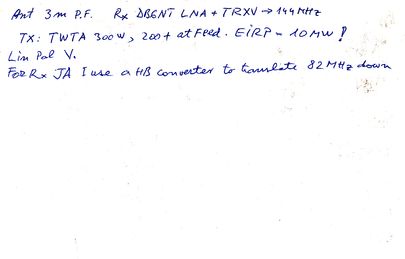 Ant 3m P.F. Rx DB6NT LNA + TRXV → 144MHz
TX: TWTA 300W, 200+ at Feed. EiRP = 10MW!
Lin Pol V.
For Rx JA I use a HB converter to translate 82 MHz down